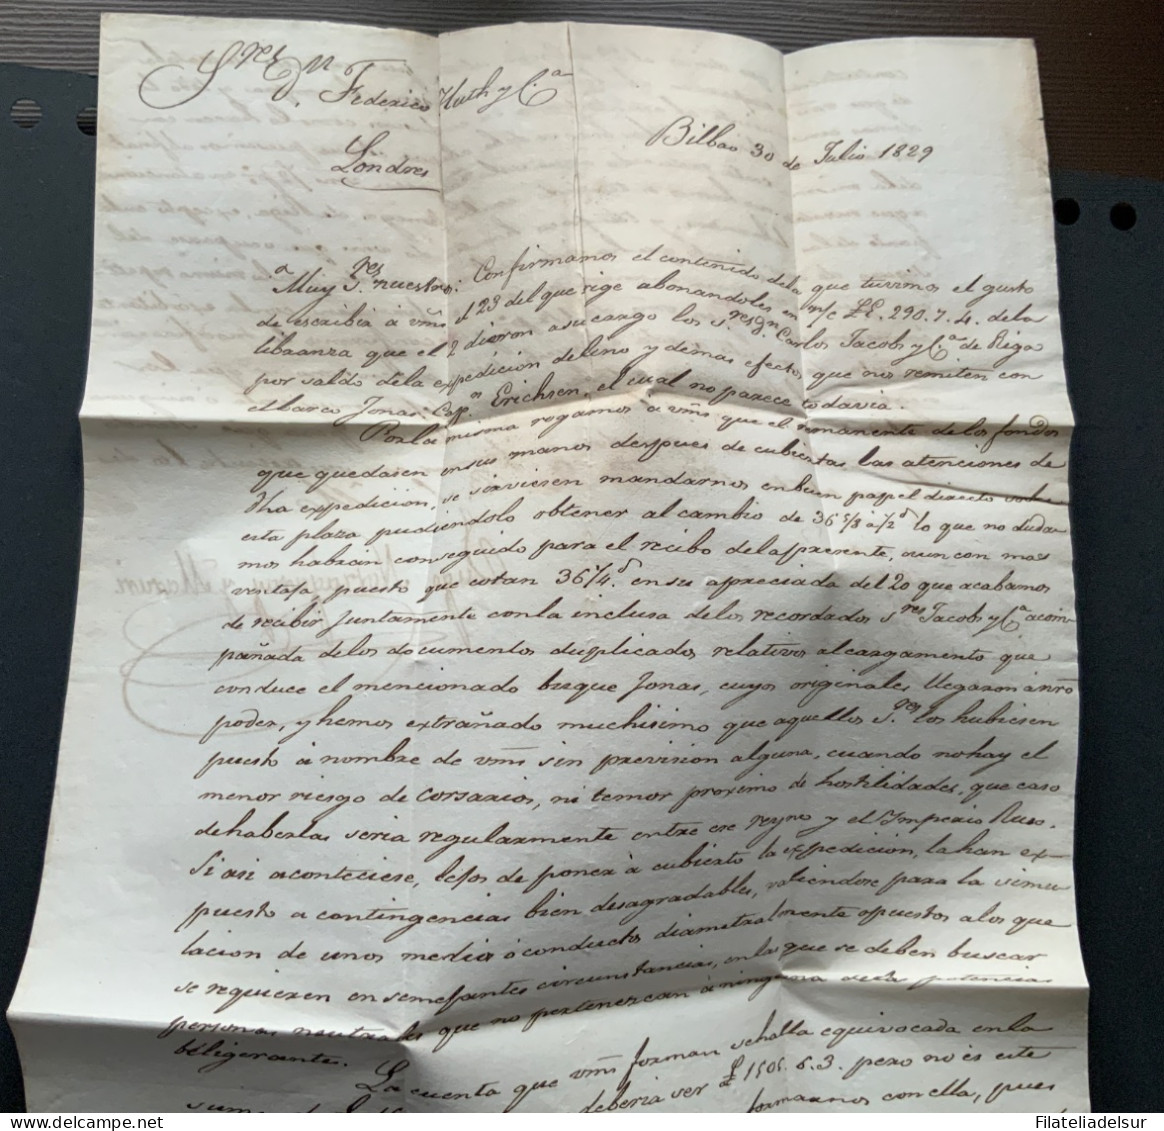 S.res D.n Federico Huth y C.a
Londres
Bilbao 30 de Julio 1829
Muy S.res nuestros: Confirmamos el contenido dela que tuvimos el gusto
de escribir a vms el 23 del que rige abonandoles en n/c L.E. 290.7.4. de la
libranza que el 2 dieron asucargo los S.res D.n Carlos Jacobs y C.a de Riga
por saldo dela expedicion delino y demas efectos que nos remiten con
el barco Jonas Cap.n Erichsen, el cual no parece todavia.
Por la misma rogamos à vms que el remanente de los fondos
que quedasen en sus manos despues de cubiertas las atenciones de
dha expedicion, se sirviesen mandarnos en buen papel directo sobre
esta plaza pudiendolo obtener al cambio de 36 5/8 à 1/2 d lo que no duda-
mos habran conseguido para el recibo dela presente, aun con mas
ventaja puesto que cotan 36 1/4 d en su apreciada del 20 que acabamos
de recibir juntamente con la inclusa de los recordados S.res Jacobs y C.a acom-
pañada de los documentos duplicados relativos al cargamento que
conduce el mencionado buque Jonas, cuyos originales llegaron à nro
poder, y hemos extrañado muchisimo que aquellos S.res los hubiesen
puesto à nombre de vms sin prevision alguna, cuando no hay el
menor riesgo de corsarios, ni temor proximo de hostilidades, que caso
de haberlas seria regularmente entre ese reyno y el Imperio Ruso.
Si asi aconteciese, lejos de poner à cubierto la expedicion, la han ex-
puesto a contingencias bien desagradables, valiendose para la simu-
lacion de unos medios ò conductos diametralmente opuestos alos que
se requieren en semejantes circunstancias, en las que se deben buscar
personas neutrales que no pertenezcan à ninguna dela potencias
biligerantes.
La cuenta que vms forman se halla equivocada en la
suma deberia ser L 1505.6.3. pero no es este
formarnos con ella, pues
Filateliadelsur